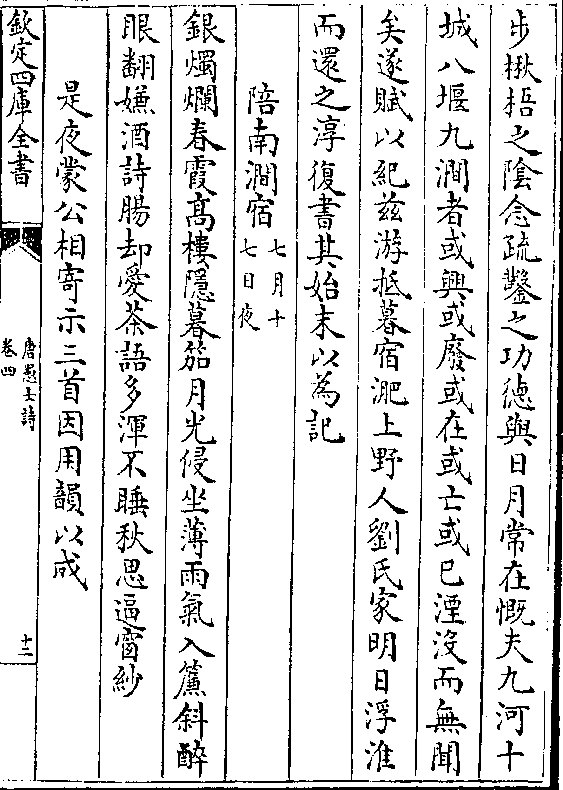 步楸梧之陰念疏鑿之功德與日月常在慨夫九河十
城八堰九澗者或興或廢或在或亡或已湮沒而無聞
矣遂賦以紀兹游抵暮宿淝上野人劉氏家明日浮淮
而還之淳復書其始末以為記
陪南澗宿七月十七日夜
銀燭爛春霞髙樓隱暮笳月光侵坐薄雨氣入簾斜醉
眼翻嫌酒詩腸却愛茶語多渾不睡秋思逼窗紗
是夜蒙公相寄示三首因用韻以成
欽定四庫全書
唐愚士詩
卷四
十二